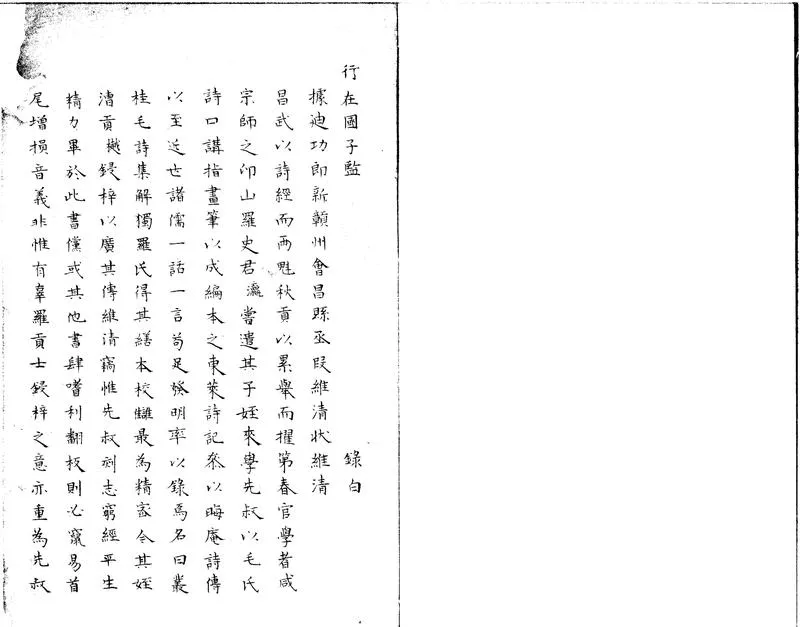 行在國子監　錄白
據迪功郎新贛州會昌縣丞段維清狀維清
昌武以詩經而两魁秋貢以累舉而擢第春官學者咸
宗師之卬山羅史君瀛嘗遣其子姪來學先叔以毛氏
詩口講指畫筆以成編本之東萊詩記叅以晦庵詩傳
以至近世諸儒一話一言苟足發明率以錄焉名曰叢
桂毛詩集解獨羅氏得其繕本校讎最為精密今其姪
漕貢樾鋟梓以廣其傳維清竊惟先叔刻志窮經平生
精力畢於此書儻或其他書肆嗜利翻板則必竄易首
尾增損音義非惟有辜羅貢士鋟梓之意亦重為先叔